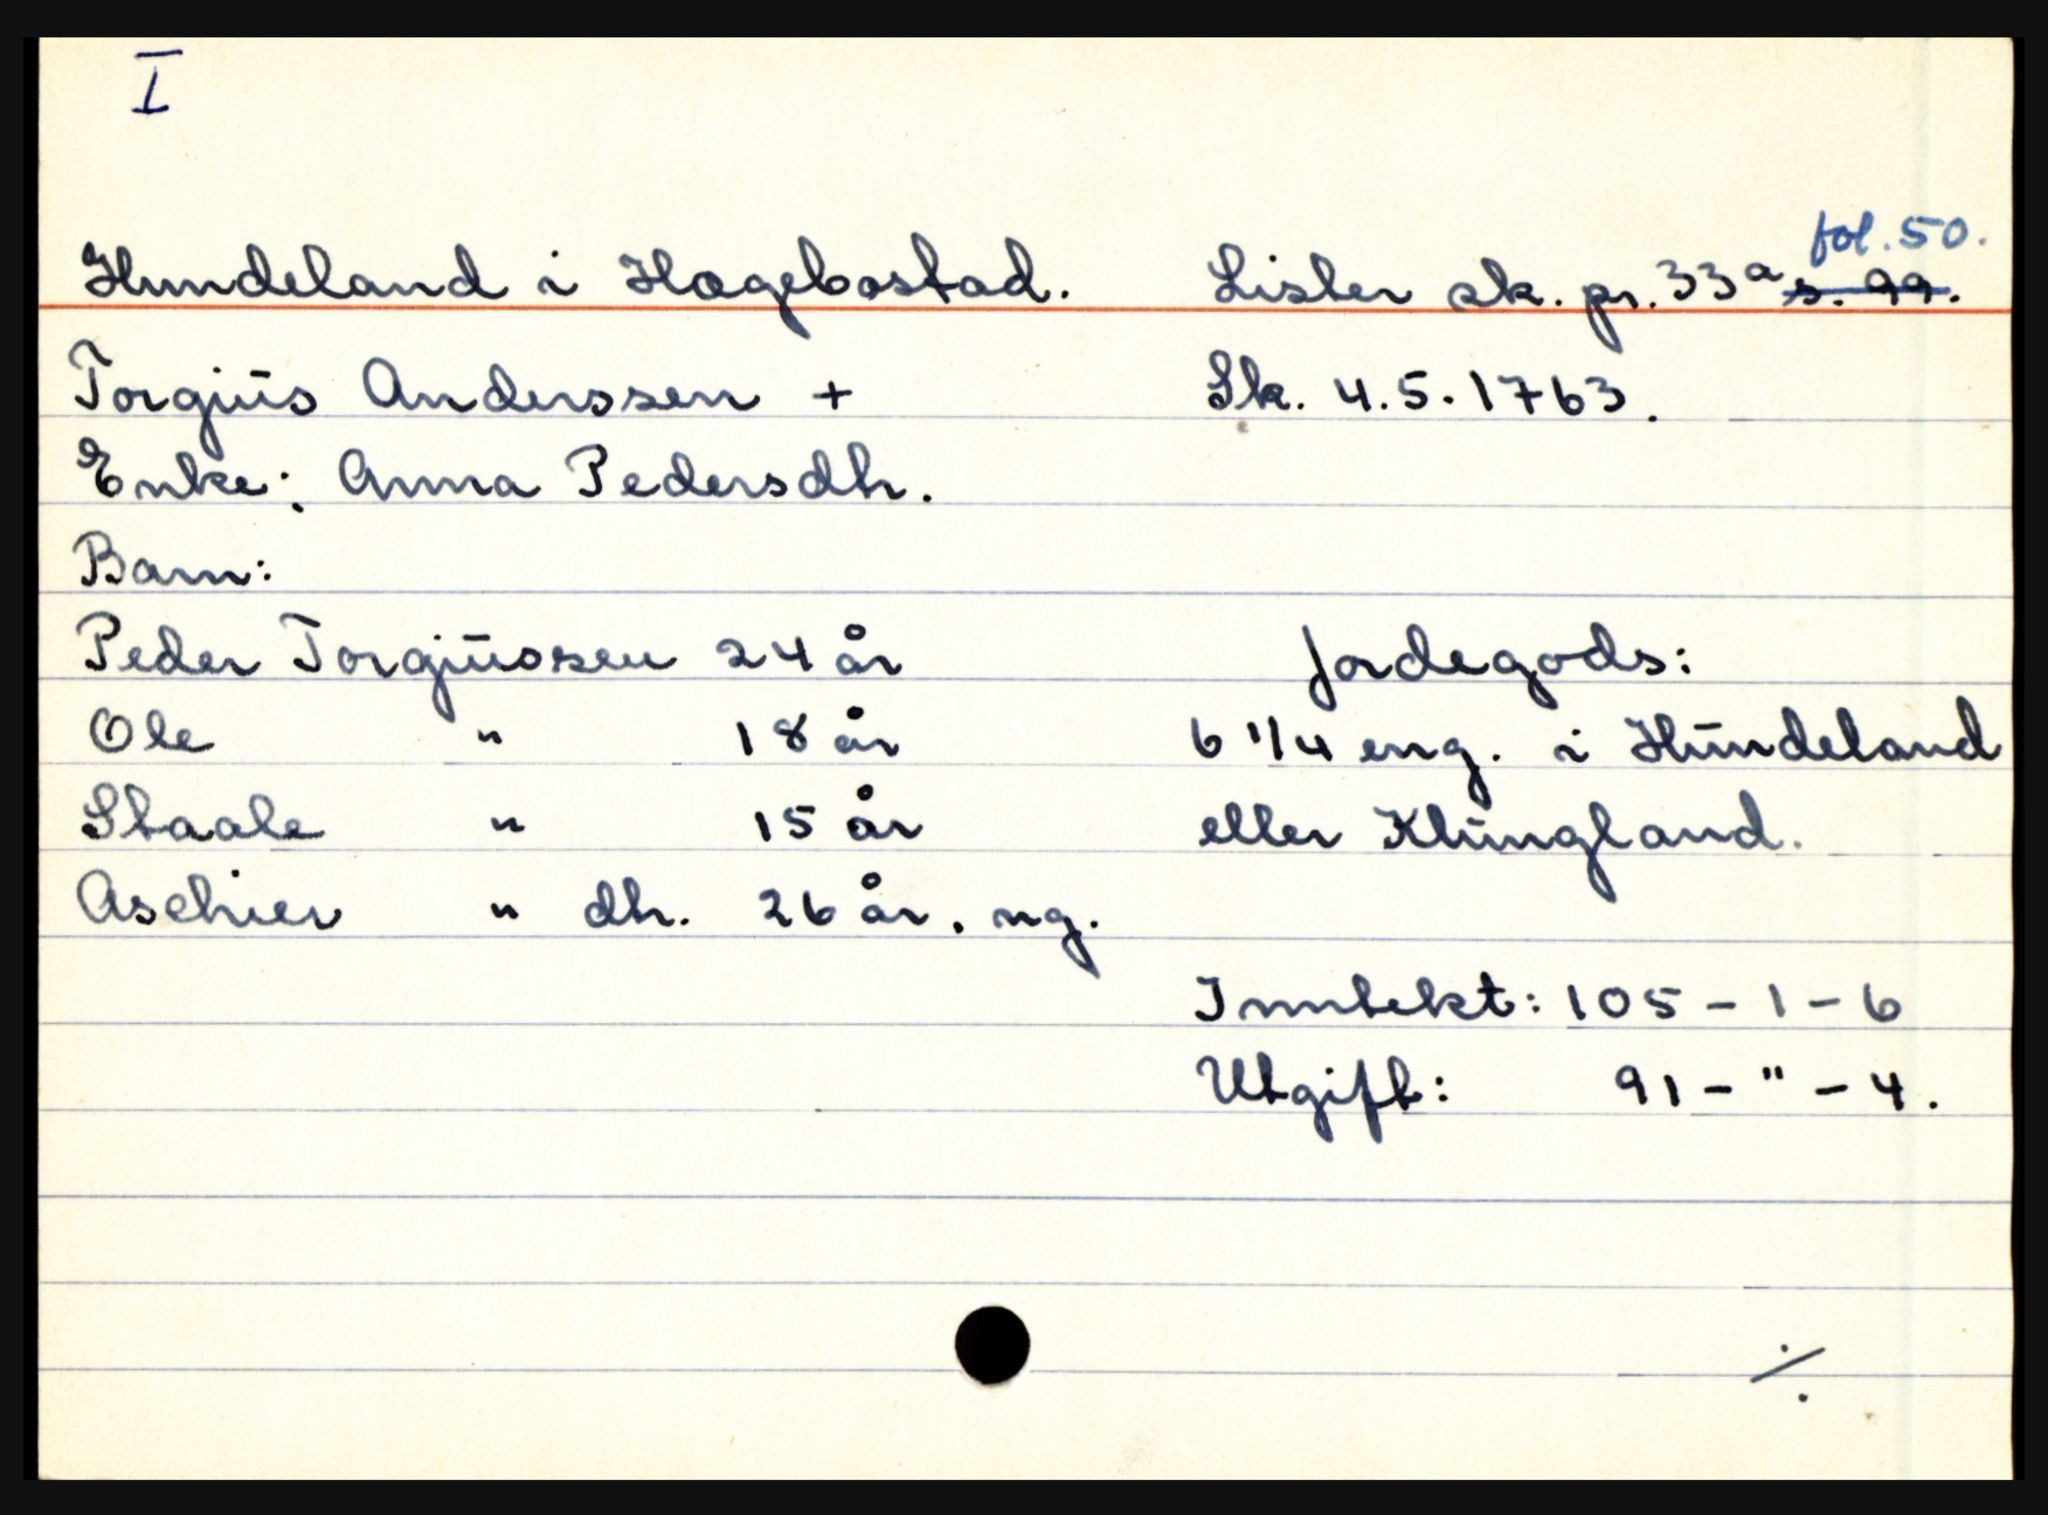 I
fol. 50.
Hundeland i Hægebostad. Lister sk. pr. 33a s. 99.
Torgiūs Anderssen + Sk. 4.5.1763.
Enke: Anna Pedersdtr.
Barn:
Peder Torgiūssen 24 år Jordegods:
Ole " 18 år 6 1/4 eng. i Hūndeland
Staale " 15 år eller Klūngland.
Aschier " dtr. 26 år. ug.
Inntekt: 105 - 1 - 6
Utgift: 91 - " - 4.
./.